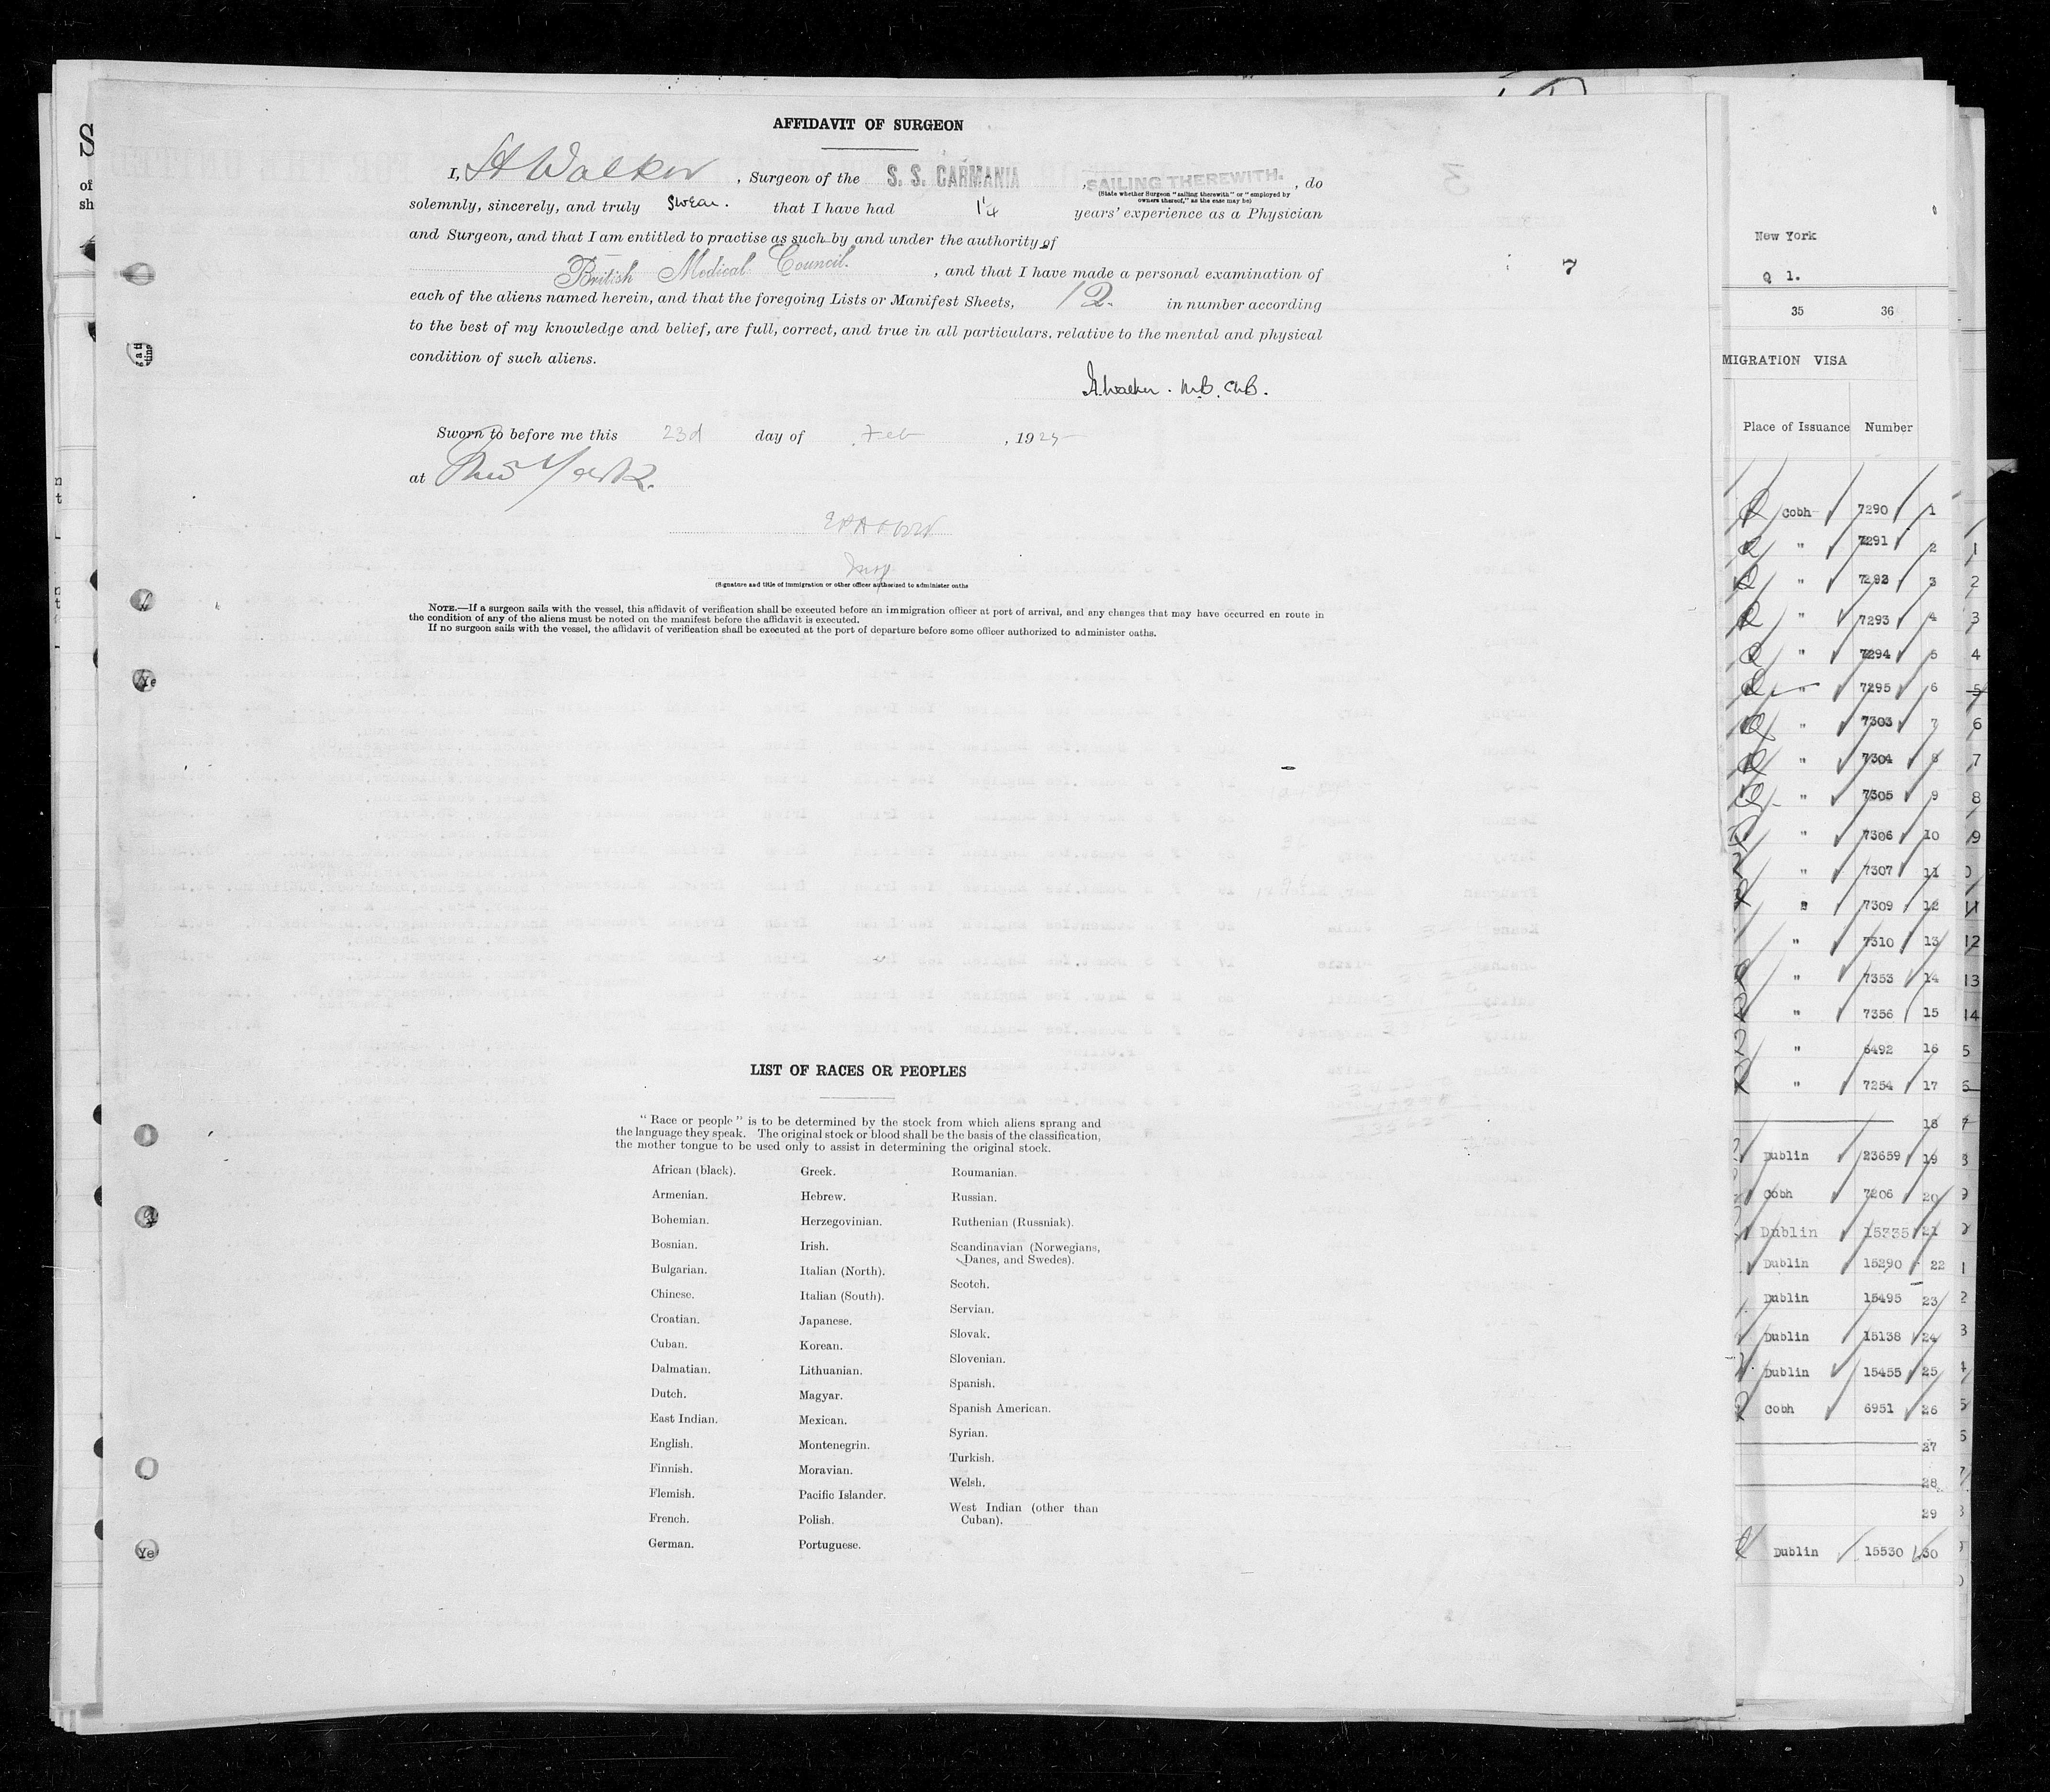 AFFIDAVIT OF SURGEON
I, H Walker, Surgeon of the S. S. CARMANIA, SAILING THEREWITH., do
(State whether Surgeon "sailing therewith" or "employed by
owners thereof," as the case may be)
solemnly, sincerely, and truly swear. that I have had 1¼ years' experience as a Physician
and Surgeon, and that I am entitled to practise as such by and under the authority of
British Medical Council., and that I have made a personal examination of
each of the aliens named herein, and that the foregoing Lists or Manifest Sheets, 12. in number according
to the best of my knowledge and belief, are full, correct, and true in all particulars, relative to the mental and physical
condition of such aliens.
H. Walker. M.B. Ch.B.
Sworn to before me this 23d day of Feb, 1925
at New York.
Insp
(Signature and title of immigration or other officer authorized to administer oaths
NOTE.—If a surgeon sails with the vessel, this affidavit of verification shall be executed before an immigration officer at port of arrival, and any changes that may have occurred en route in
the condition of any of the aliens must be noted on the manifest before the affidavit is executed.
If no surgeon sails with the vessel, the affidavit of verification shall be executed at the port of departure before some officer authorized to administer oaths.
7
LIST OF RACES OR PEOPLES
"Race or people" is to be determined by the stock from which aliens sprang and
the language they speak. The original stock or blood shall be the basis of the classification,
the mother tongue to be used only to assist in determining the original stock.
African (black).
Armenian.
Bohemian.
Bosnian.
Bulgarian.
Chinese.
Croatian.
Cuban.
Dalmatian.
Dutch.
East Indian.
English.
Finnish.
Flemish.
French.
German.
Greek.
Hebrew.
Herzegovinian.
Irish.
Italian (North).
Italian (South).
Japanese.
Korean.
Lithuanian.
Magyar.
Mexican.
Montenegrin.
Moravian.
Pacific Islander.
Polish.
Portuguese.
Roumanian.
Russian.
Ruthenian (Russniak).
Scandinavian (Norwegians,
Danes, and Swedes).
Scotch.
Servian.
Slovak.
Slovenian.
Spanish.
Spanish American.
Syrian.
Turkish.
Welsh.
West Indian (other than
Cuban).
New York
Q 1.
35 36
MIGRATION VISA
Place of Issuance Number
Cobh 7290 1
" 7291 2
" 7292 3
" 7293 4
" 7294 5
" 7295 6
" 7303 7
" 7304 8
" 7305 9
" 7306 10
" 7307 11
" 7309 12
" 7310 13
" 7353 14
" 7356 15
" 6492 16
" 7254 17
18
Dublin 23659 19
Cobh 7206 20
Dublin 15335 21
Dublin 15290 22
Dublin 15495 23
Dublin 15138 24
Dublin 15455 25
Cobh 6951 26
27
28
29
Dublin 15530 30